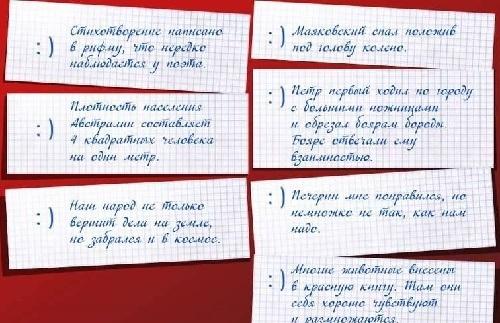 :) Стихотворение написано
в рифму, что нередко
наблюдается у поэта.
:) Плотность населения
Австралии составляет
4 квадратных человека
на один метр.
:) Наш народ не только
вершит дела на земле,
но забрался и в космос.
:) Маяковский спал положив
под голову колено.
:) Петр первый ходил по городу
с большими ножницами
и обрезал боярам бороды.
Бояре отвечали ему
взаимностью.
:) Печорин мне понравился, но
немножко не так, как нам
надо.
:) Многие животные внесены
в красную книгу. Там они
себя хорошо чувствуют
и размножаются.